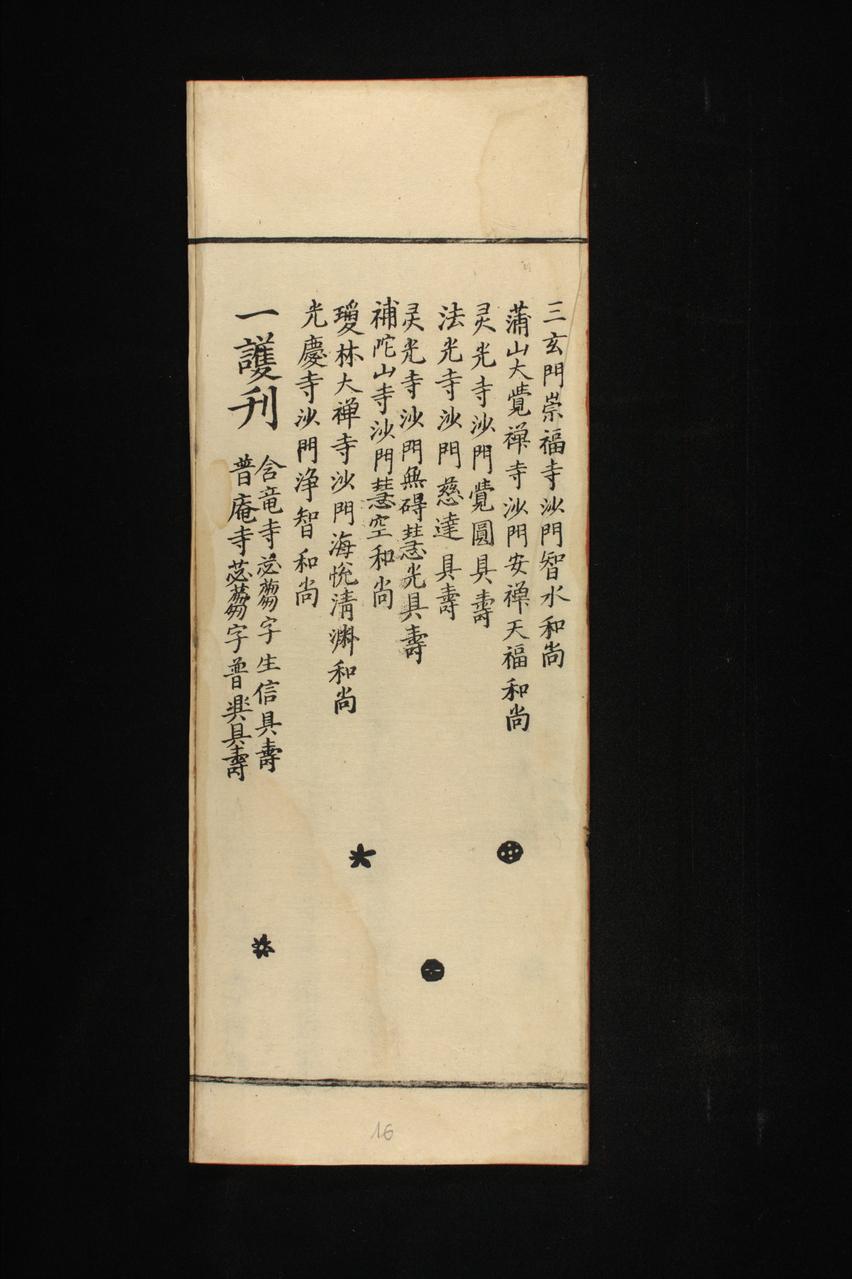 三玄門崇福寺沙門智水和尚
蒲山大覺禅寺沙門安禅天福和尚
灵光寺沙門覺圓具壽
法光寺沙門慈達具壽
灵光寺沙門無碍慧光具壽
補陀山寺沙門慧空和尚
璦林大禅寺沙門海悅清渊和尚
光慶寺沙門浄智和尚
一護刊
含竜寺苾蒭字生信具壽
普庵寺苾蒭字普具壽
16